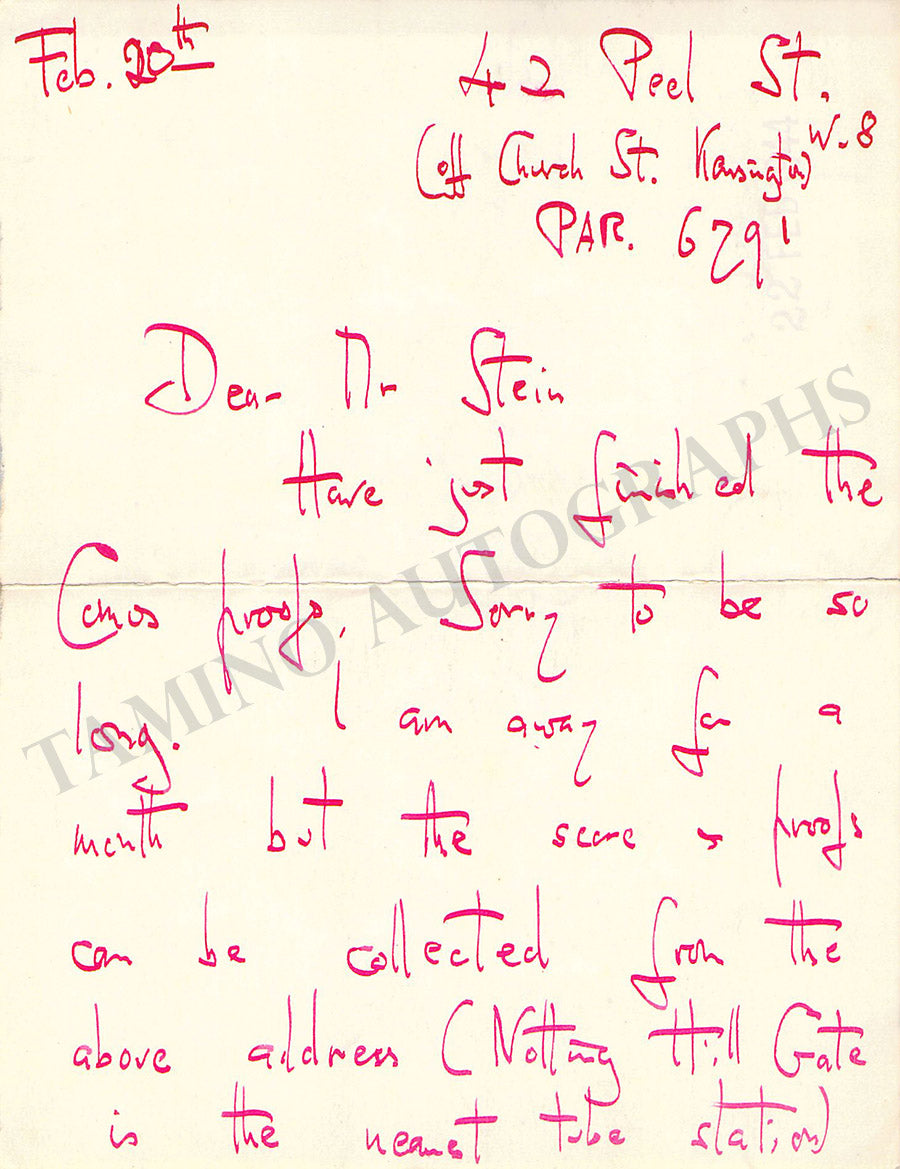 Feb. 20th
42 Peel St.
W.8
(off Church St. Kensington)
PAR. 6791
Dear Mr Stein
Have just finished the
proofs. Sorry to be so
long. I am away for a
month but the score & proofs
can be collected from the
above address (Notting Hill Gate
is the nearest tube station)
TAMINO AUTOGRAPHS